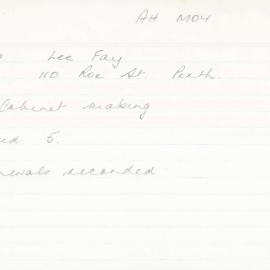 AH M04
Lee Fay
110 Roe St. Perth.
Cabinet making
5.
recorded